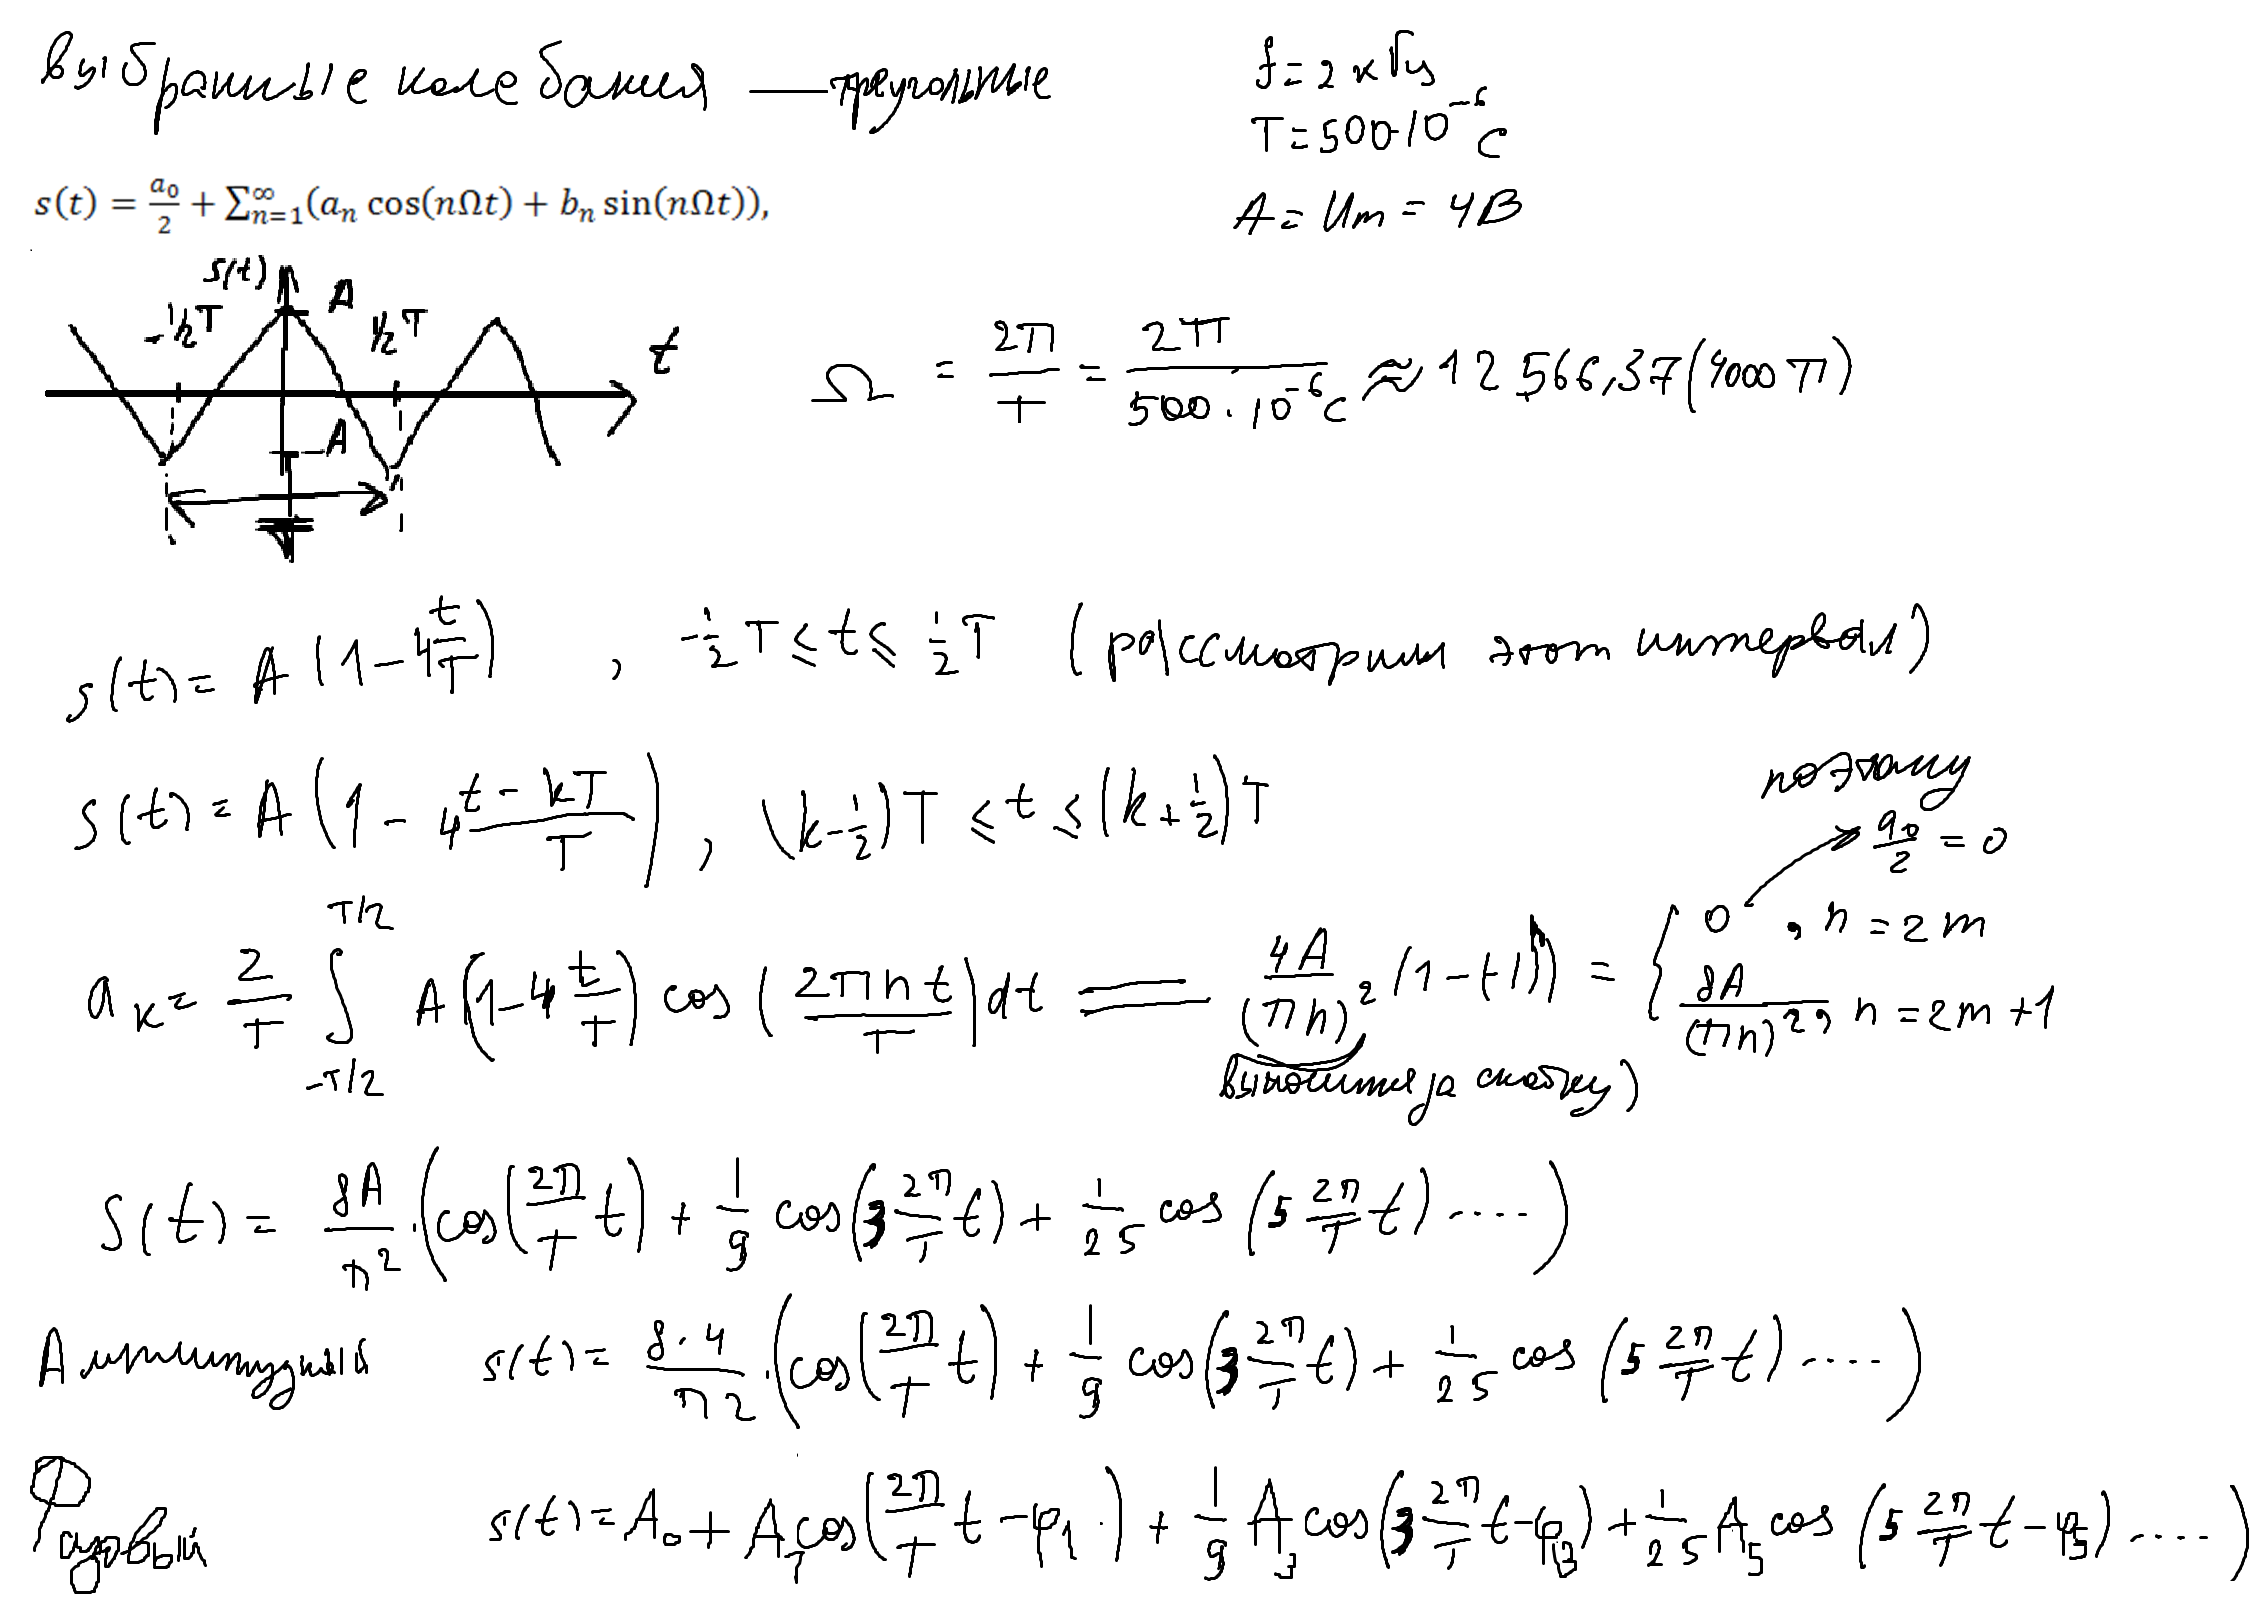 выбранные колебания — треугольные
f = 2 кГц
T = 500·10⁻⁶ с
A = Um = 4В
s(t) = a₀/2 + ∑ₙ₌₁^∞(aₙ cos(nΩt) + bₙ sin(nΩt)),
s(t) A
-1/2T 1/2T t
-A
T
Ω = 2π/T = 2π/(500·10⁻⁶c) ≈ 12 566,37 (4000π)
s(t) = A(1-4t/T) , -1/2T ≤ t ≤ 1/2T (рассмотрим этот интервал)
s(t) = A(1 - 4(t-kT)/T) , (k-1/2)T ≤ t ≤ (k+1/2)T
поэтому a₀/2 = 0
aк = 2/T ∫_{-T/2}^{T/2} A(1-4t/T) cos(2πnt/T)dt = 4A/(πn)² (1-(-1)ⁿ) = { 0, n = 2m
8A/(πn)², n = 2m+1
выносится за скобку)
S(t) = 8A/π² · (cos(2π/T t) + 1/9 cos(3 2π/T t) + 1/25 cos(5 2π/T t) ....)
Амплитудный s(t) = 8·4/π2 · (cos(2π/T t) + 1/9 cos(3 2π/T t) + 1/25 cos(5 2π/T t) ....)
Фазовый s(t) = A₀ + A₁cos(2π/T t - φ₁) + 1/9 A₃ cos(3 2π/T t - φ₃) + 1/25 A₅ cos(5 2π/T t - φ₅) ....)